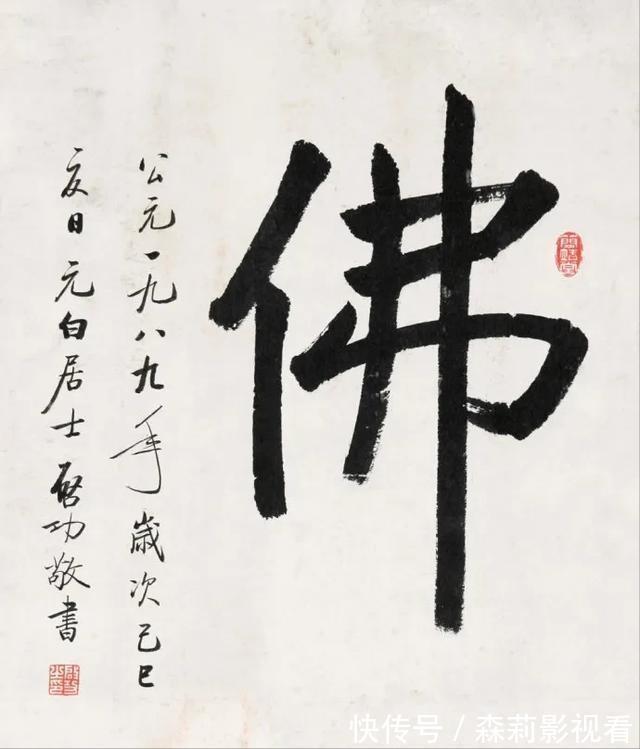 佛
公元一九八九年歲次己巳
夏日元白居士啓功敬書
快传号 / 森莉影视看